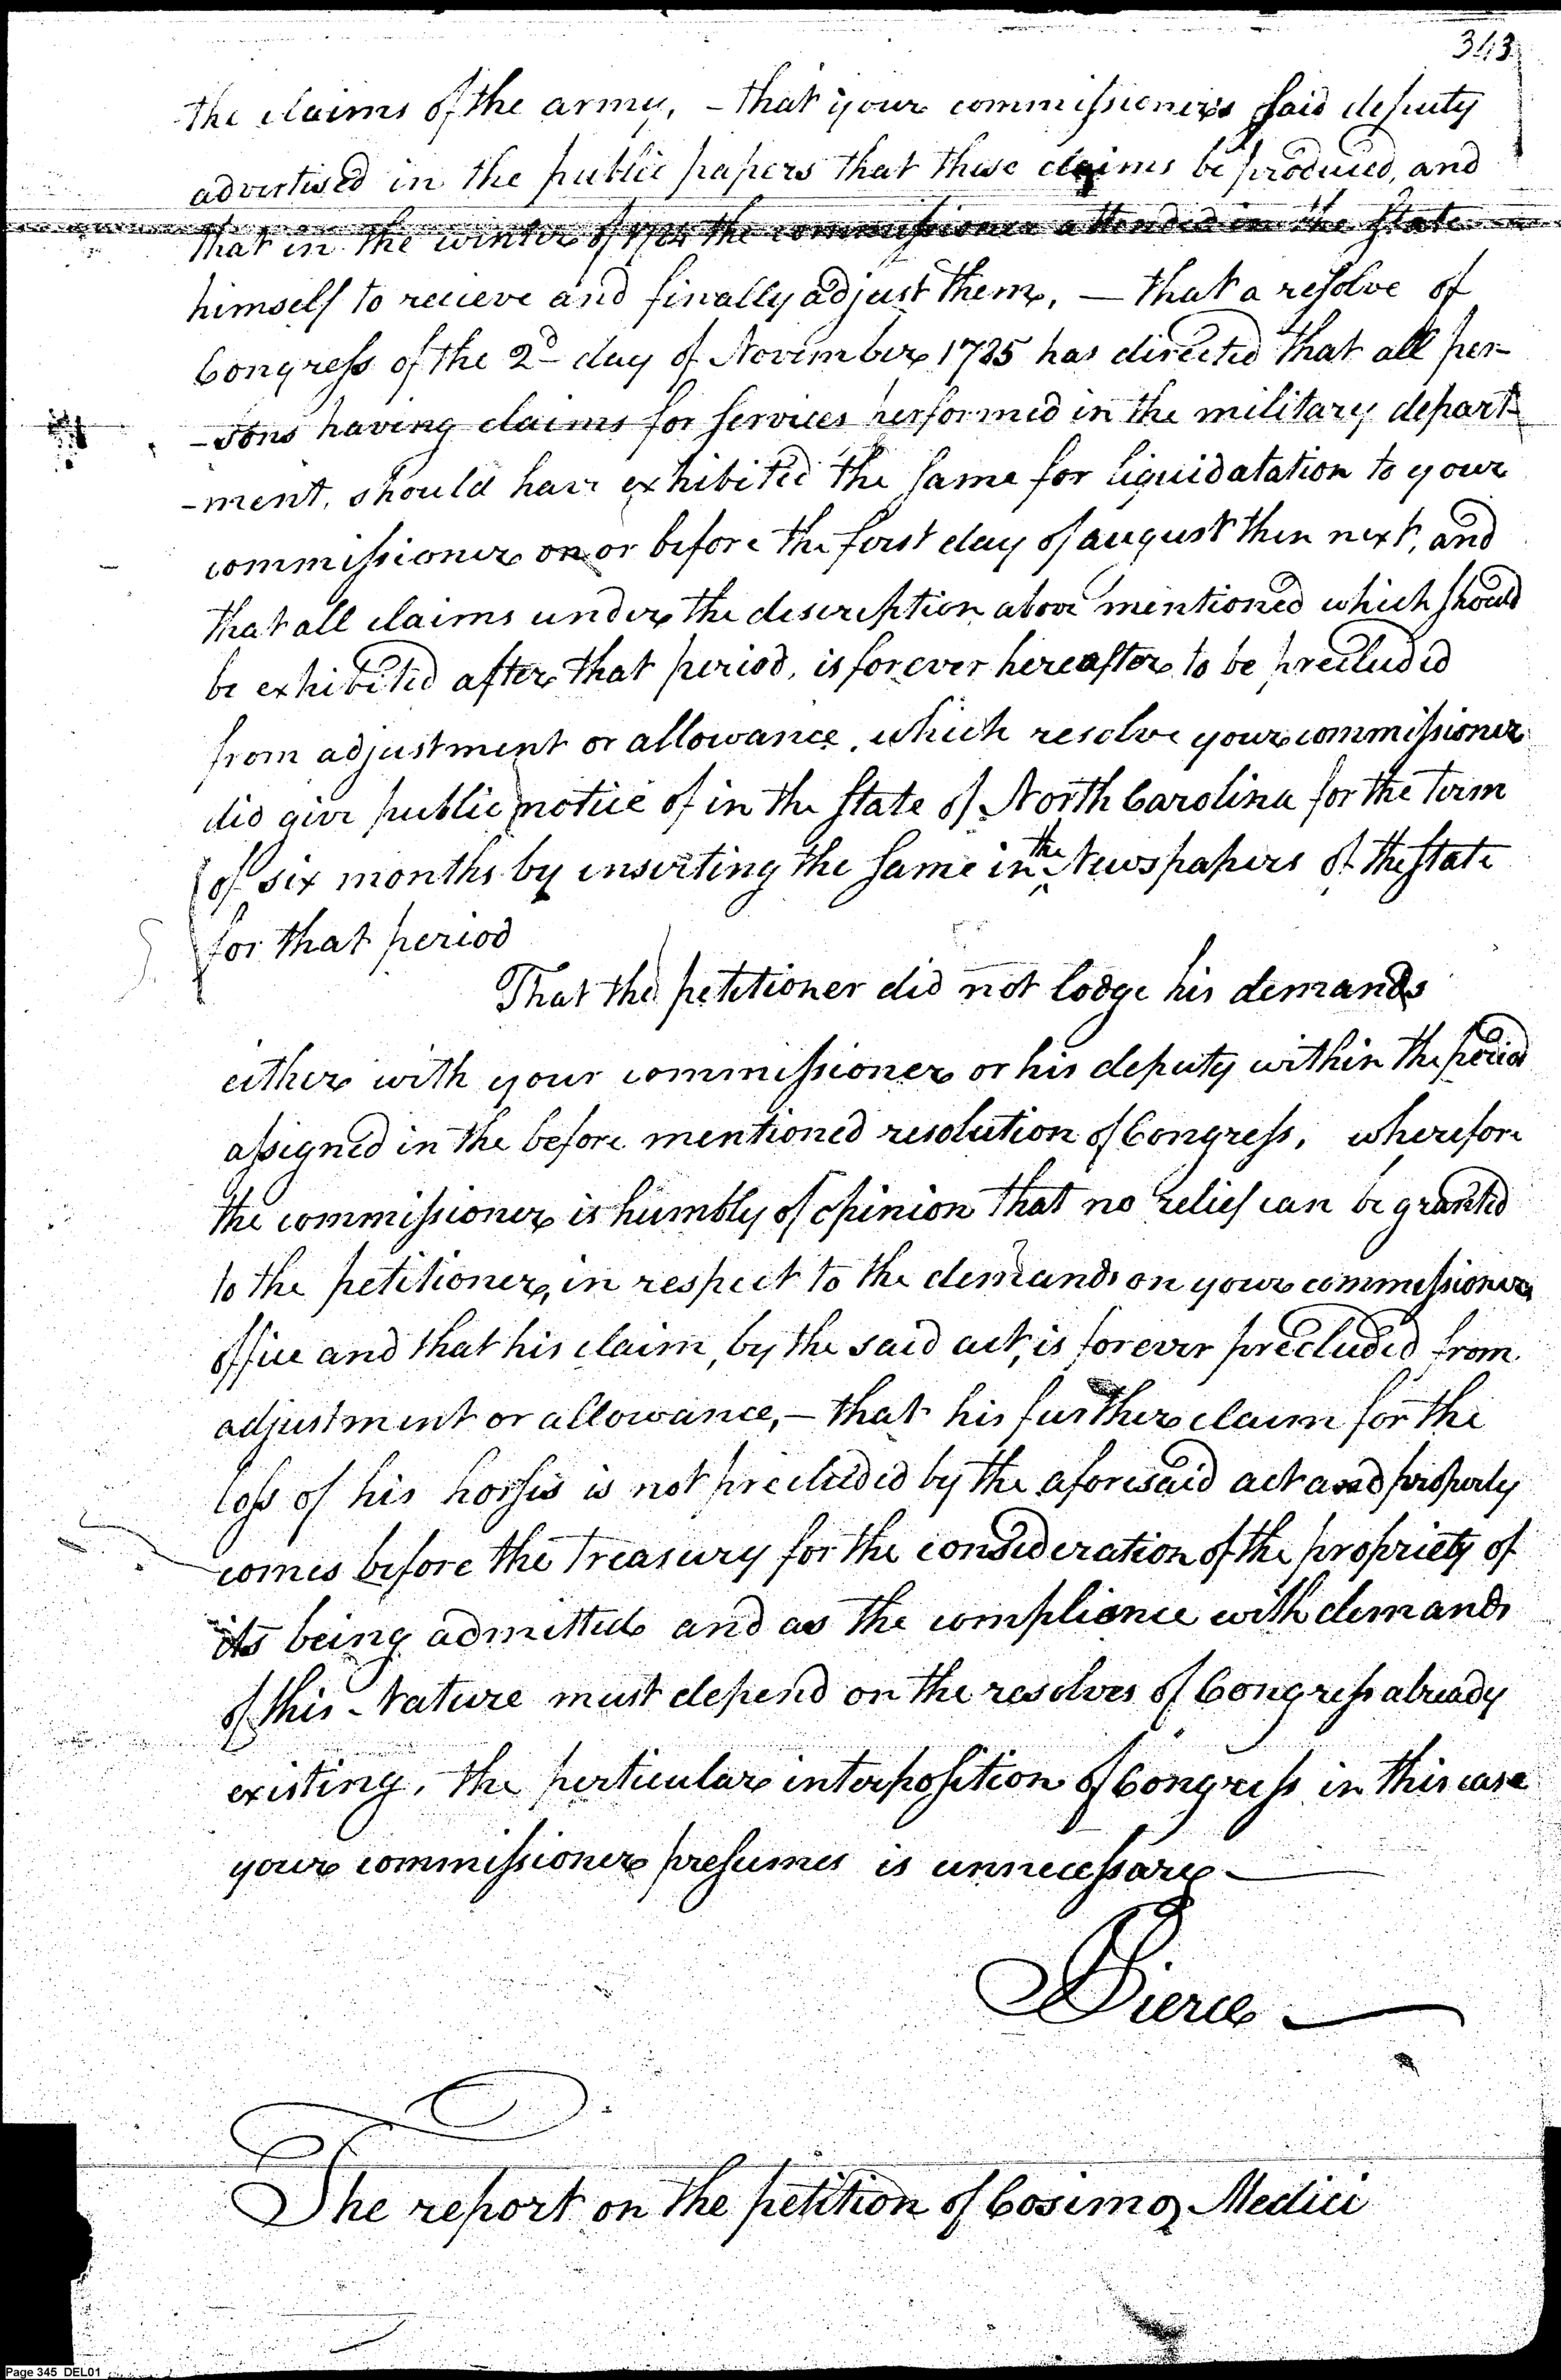 343
the claims of the army, - that your commissioners said deputy
advertised in the public papers that these claims be produced, and
that in the winter of 1784 the commissioner attended in the State
himself to recieve and finally adjust them, — that a resolve of
Congress of the 2d day of November 1785 has directed that all per-
-sons having claims for services performed in the military depart-
-ment, should have exhibited the same for liquidatation to your
commissioner on or before the first day of august then next, and
that all claims under the description above mentioned which should
be exhibited after that period, is forever hereafter to be precluded
from adjustment or allowance, which resolve your commissioner
did give public notice of in the State of North Carolina for the term
of six months by inserting the same in the Newspapers of the State
for that period
That the petitioner did not lodge his demands
either with your commissioner or his deputy within the period
assigned in the before mentioned resolution of Congress, wherefore
the commissioner is humbly of opinion that no relief can be granted
to the petitioner, in respect to the demands on your commissioners
office and that his claim, by the said act, is forever precluded from
adjustment or allowance, — that his further claim for the
loss of his horses is not precluded by the aforesaid act and properly
comes before the Treasury for the consideration of the propriety of
its being admitted and as the compliance with demands
of this Nature must depend on the resolves of Congress already
existing, the perticular interposition of Congress in this case
your commissioner presumes is unnecessary —
Pierce —
The report on the petition of Cosimo Medici
Page 345 DEL01